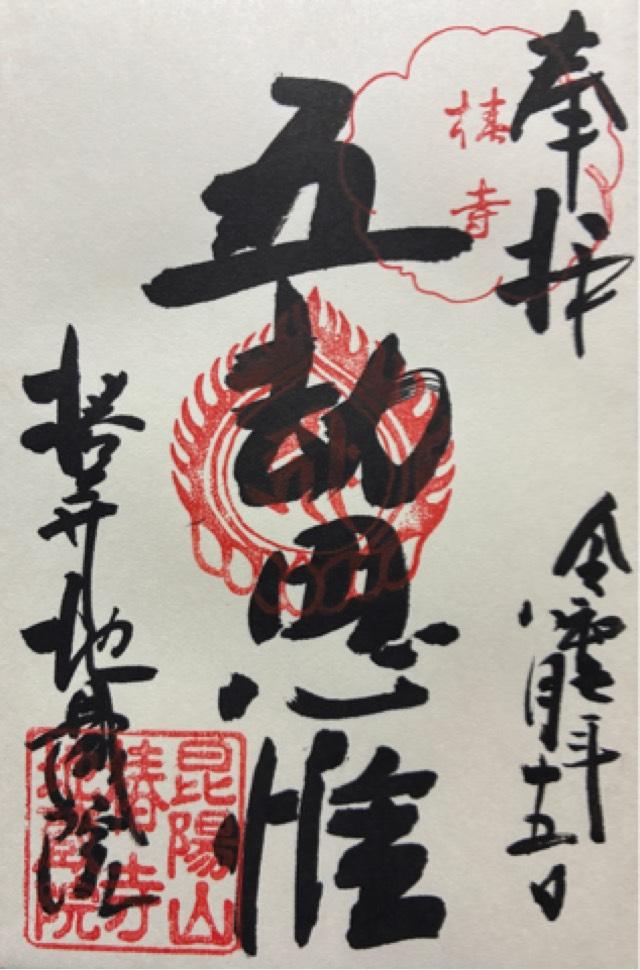 奉拝
椿寺
五劫思惟
十五日
椿寺地蔵院
昆陽山
椿寺
地蔵院